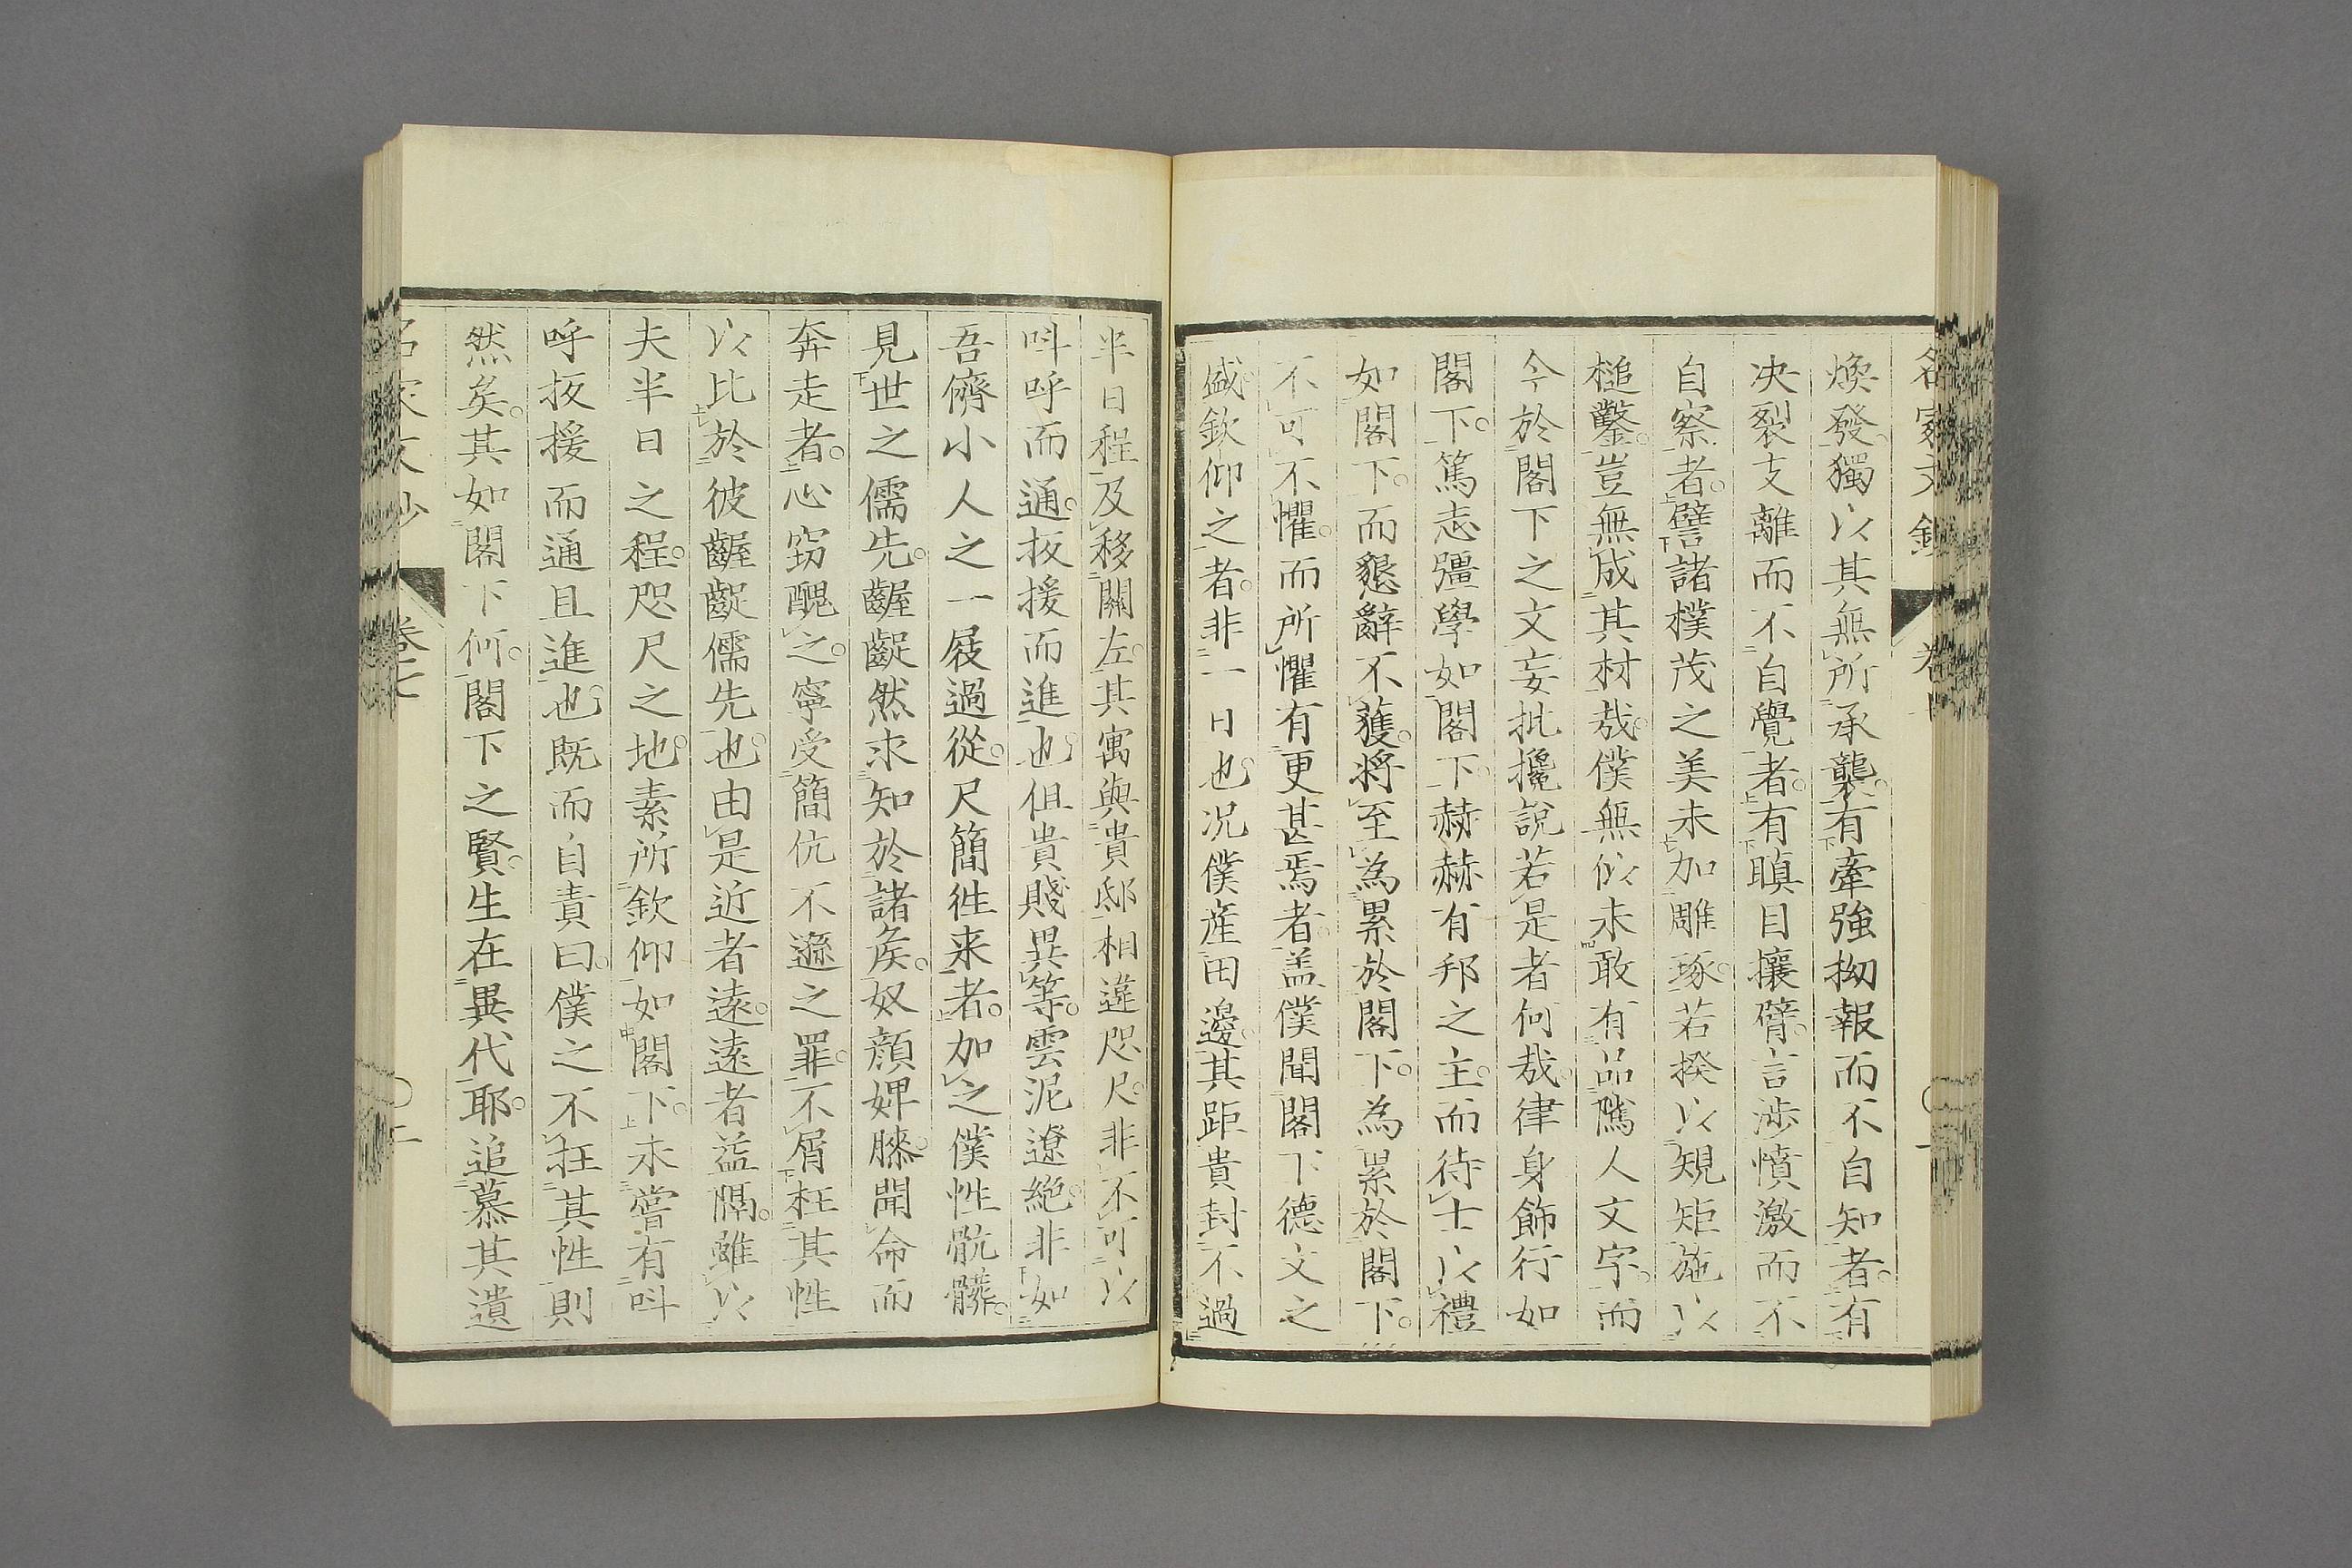 煥發。獨以其無所承襲。有牽強拗報而不自知者。有
決裂支離而不自覺者。有瞋目攘臂。言涉憤激而不
自察者。譬諸樸茂之美未加雕琢。若揆以規矩施以
槌鑿。豈無成其材哉。僕無似未敢有品隲人文字。而
今於閣下之文妄批攙說若是者何哉。律身飾行如
閣下。篤志彊學如閣下。赫赫有邦之主。而待士以禮
如閣下。而懇辭不獲。將至為累於閣下。為累於閣下。
不可不懼。而所懼有更甚焉者。盖僕聞閣下德文之
盛欽仰之者。非一日也。况僕産田邊。其距貴封不過
半日程及移關左。其寓與貴邸相違咫尺。非不可以
呌呼而通。扳援而進也。但貴賤異等。雲泥遼絶。非如
吾儕小人之一屐過從。尺簡徃来者。加之僕性骯髒。
見世之儒先。齷齪然求知於諸矦。奴顔婢膝。聞命而
奔走者。心竊醜之。寧受簡伉不遜之罪。不屑枉其性
以比於彼齷齪儒先也。由是近者遠。遠者益隔。雖以
夫半日之程。咫尺之地。素所欽仰如閣下。未嘗有呌
呼扳援而通且進也。既而自責曰。僕之不枉其性則
然矣。其如閣下何。閣下之賢。生在異代耶。追慕其遺